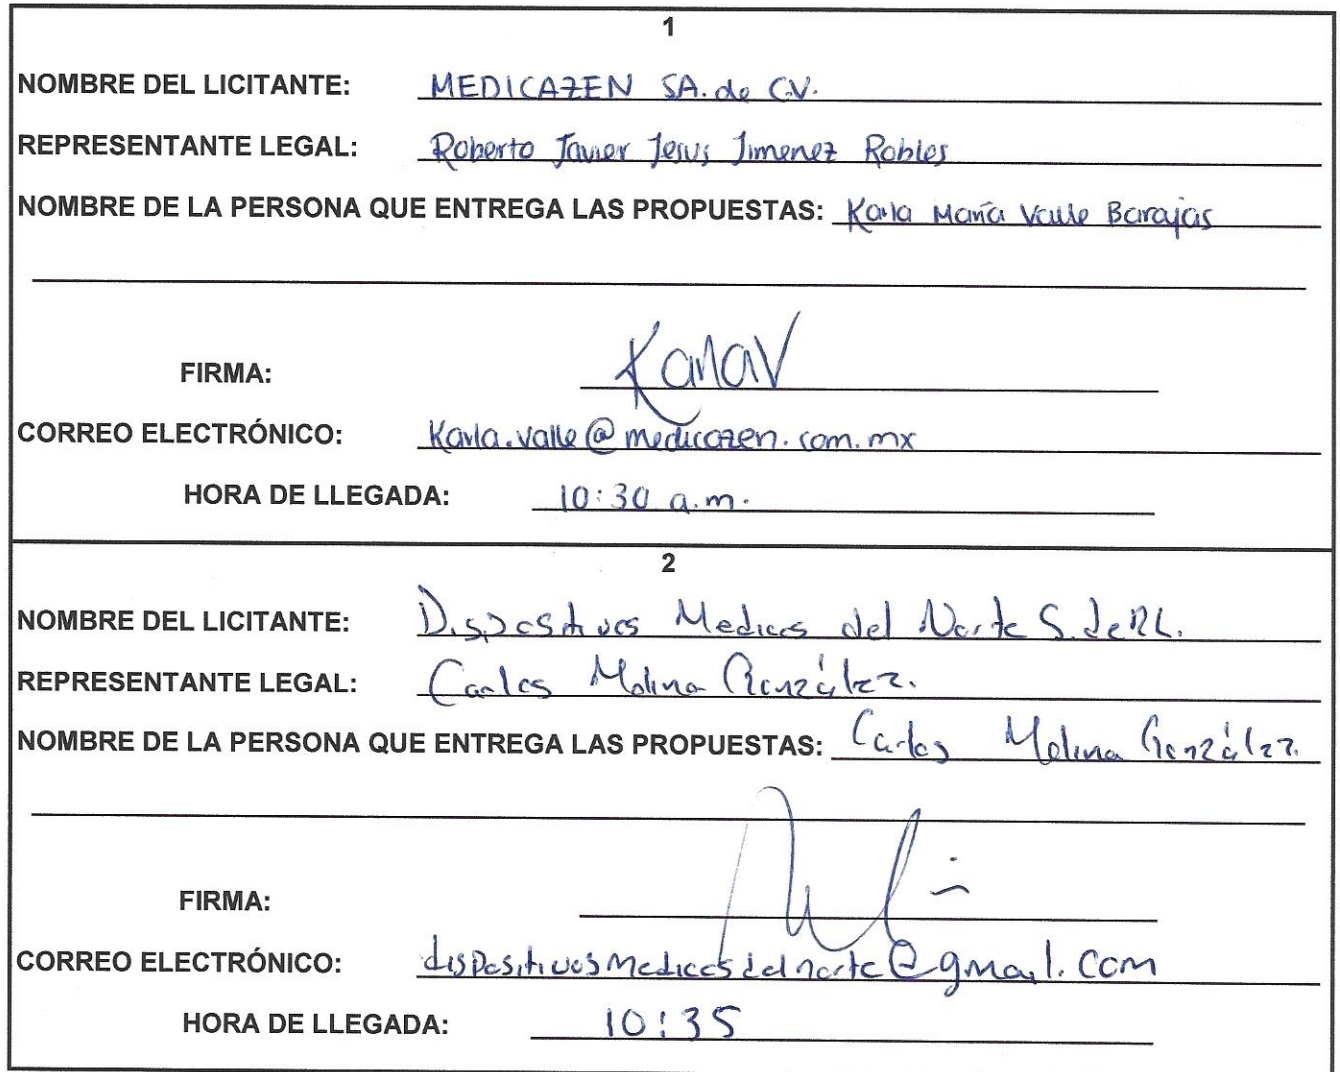 1
NOMBRE DEL LICITANTE: MEDICAZEN SA. de C.V.
REPRESENTANTE LEGAL: Roberto Javier Jesus Jimenez Robles
NOMBRE DE LA PERSONA QUE ENTREGA LAS PROPUESTAS: Karla María Valle Barajas
FIRMA: KarlaV
CORREO ELECTRÓNICO: Karla.valle@medicazen.com.mx
HORA DE LLEGADA: 10:30 a.m.
2
NOMBRE DEL LICITANTE: Dispositivos Medicos del Norte S. de RL.
REPRESENTANTE LEGAL: Carlos Molina González.
NOMBRE DE LA PERSONA QUE ENTREGA LAS PROPUESTAS: Carlos Molina González.
FIRMA:
CORREO ELECTRÓNICO: dispositivosmedicosdelnorte@gmail.com
HORA DE LLEGADA: 10:35